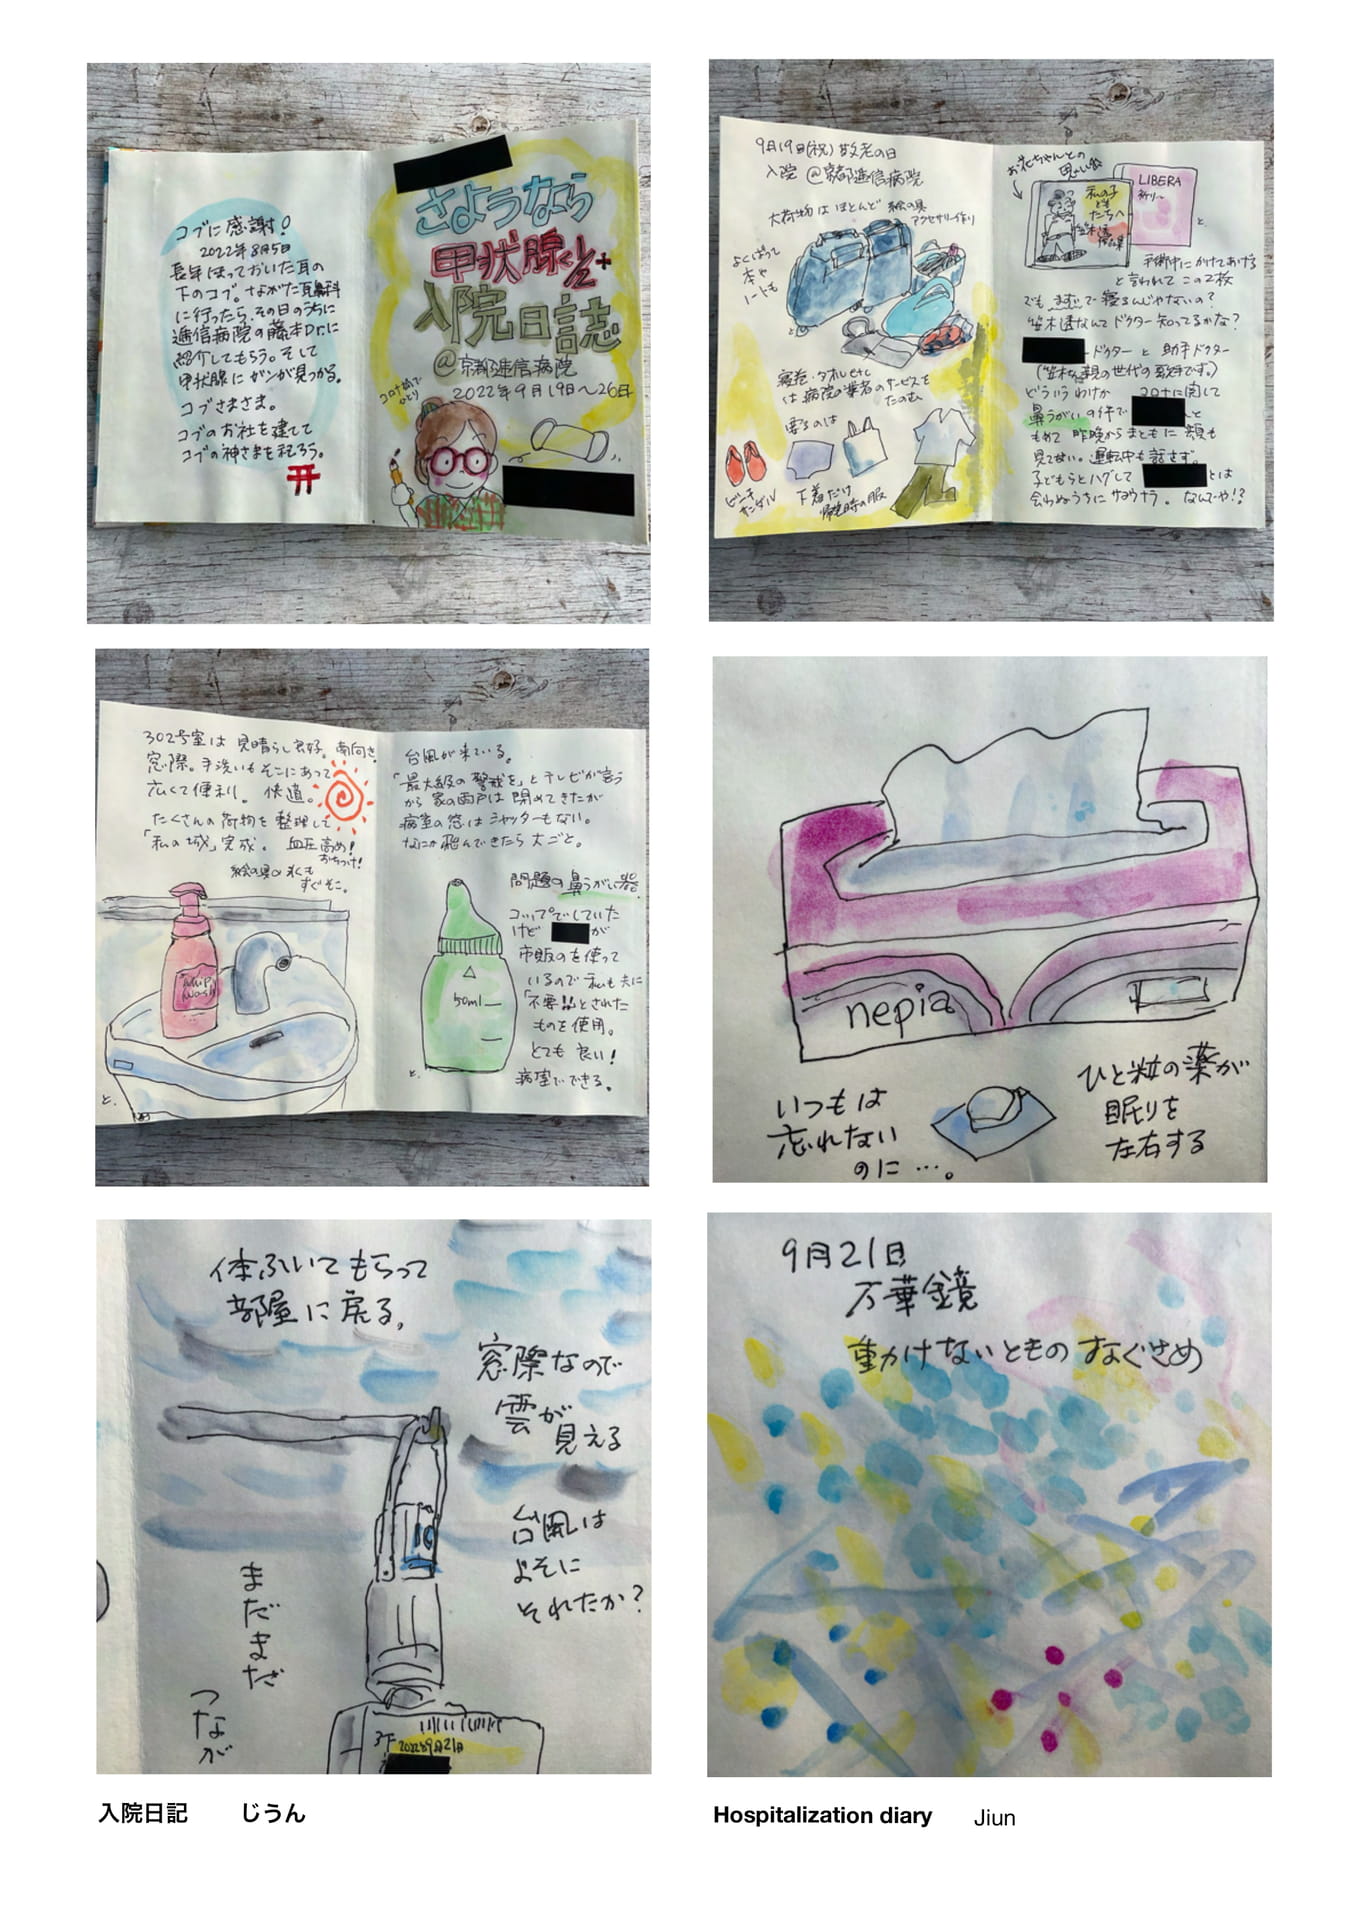 コブに感謝!
2022年8月5日
長年ほっておいた耳の
下のコブ。ながた耳鼻科
に行ったら、その日のうちに
逓信病院の藤本Dr.に
紹介してもらう。そして
甲状腺にガンが見つかる。
コブさまさま。
コブのお社を建てて
コブの神さまを祀ろう。
さようなら
甲状腺くん+
入院日誌
@京都逓信病院
2022年9月19日〜26日
コロナ禍で
ひとり
9月19日(祝)敬老の日
入院 @京都逓信病院
大荷物は ほとんど 絵の具
アクセサリー作り
よくばって
本や
ノートも
寝巻・タオルetc
は 病院の業者のサービスを
たのむ
要るのは
ビーチ
サンダル
下着だけ
帰宅時の服
お花ちゃんとの
思い出
私の子
ども
たちへ
笠木透
LIBERA
祈り
と.
手術中にかけてあげる
と言われて この2枚
でも まずで 寝るんじゃないの?
笠木透なんて ドクター 知ってるかな?
ドクター と 助手ドクター
(笠木さん 親の世代の歌手です。)
どういうわけか コロナに関して
鼻うがいの件で と
もめて 昨晩から まともに 顔も
見てない。運転中も 話さず。
子どもらとハグして とは
会わぬうちに サヨウナラ。なんでや!?
302号室は 見晴らし良好。南向き
窓際。手洗いもそこにあって
広くて便利。快適。
たくさんの荷物を整理して
「私の城」完成。血圧高め!
おちつけ!
絵の具の水も
すぐそこ。
whip
wash
と.
台風が来ている。
「最大級の警戒を」とテレビが言う
から 家の雨戸は 閉めてきたが
病室の窓は シャッターもない。
なにか飛んできたら 大ごと。
問題の鼻うがい器
コップでしていた
けど が
市販のを使って
いるので 私も夫に
「不要!!」とされた
ものを使用。
とても 良い!
病室でできる。
50ml
と.
nepia
いつもは
忘れない
のに…。
ひと粒の薬が
眠りを
左右する
体ふいてもらって
部屋に戻る。
窓際なので
雲が
見える
台風は
よそに
それたか?
まだまだ
つなが
3F
2022年9月21日
9月21日
万華鏡
動けないときの なぐさめ
入院日記 じうん
Hospitalization diary Jiun